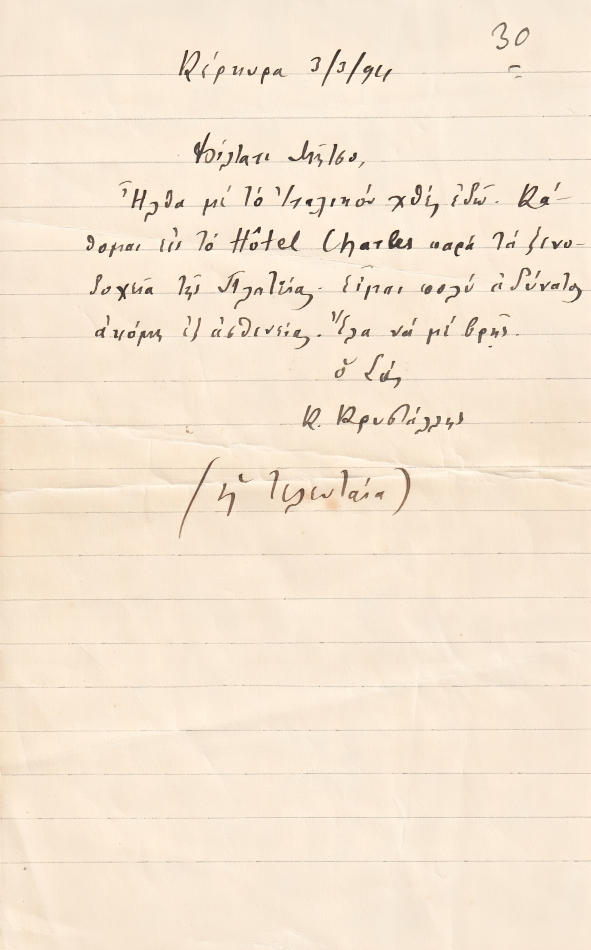 30
Κέρκυρα 3/3/94
Φίλτατε Μῆτσο,
Ἦλθα μέ τό Ἰταλικόν χθές ἐδῶ. Κά-
θομαι εἰς τό Hôtel Charles παρά τά ξενο-
δοχεῖα τῆς Πλατείας. Εἶμαι πολύ ἀδύνατος
ἀκόμη ἐξ ἀσθενείας. Ἔλα νά μέ βρῇς.
ὁ Σός
Κ. Κρυστάλλης
(ἡ τελευταία)